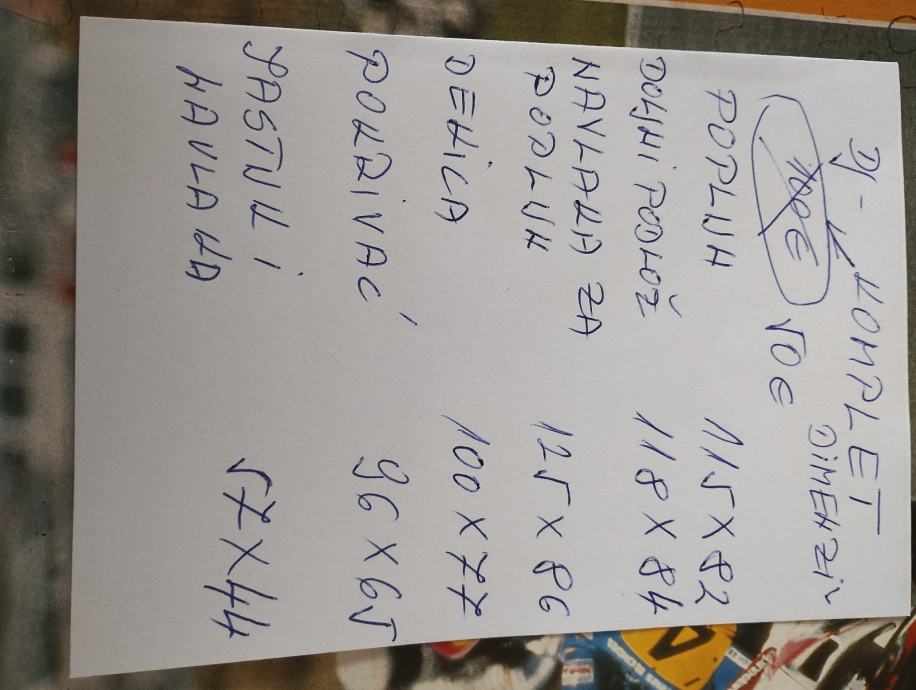 DJ - KOMPLET
100€ 50€
POPLUN 115 X 82
PODLOŽ 118 X 84
NAVLAKA ZA
POPLUN 125 X 86
DEKICA 100 X 77
POKRIVAČ 96 X 65
JASTUK i
NAVLAKA 57 X 44